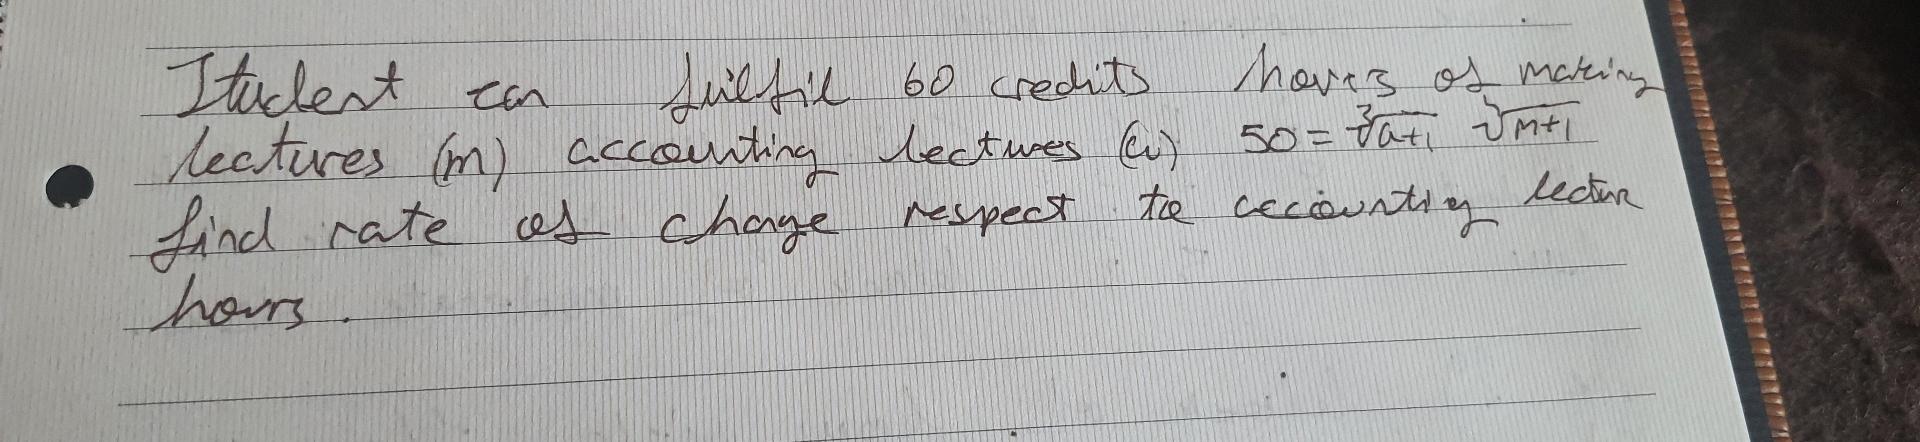 Student can fulfil 60 credits hours of making
lectures (m) accounting lectures (a) 50 = ∛a+1 √m+1
find rate of change respect to accounting lectur
hours.